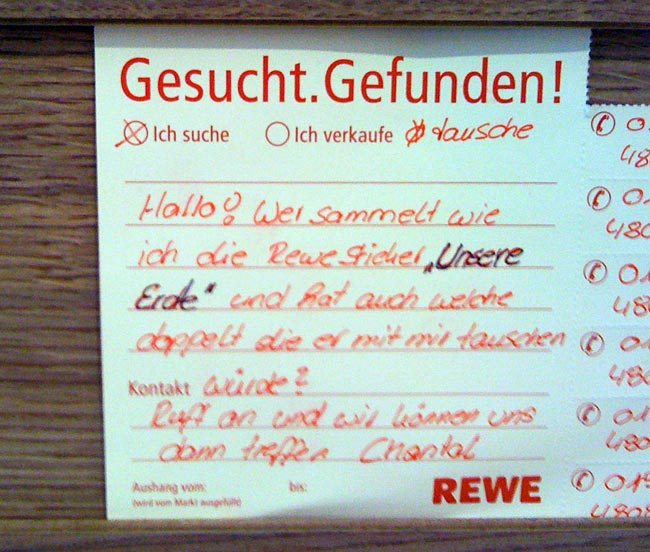 Gesucht. Gefunden!
Ich suche Ich verkaufe tausche
Hallo! Wer sammelt wie
ich die Rewe Sticker „Unsere
Erde“ und hat auch welche
doppelt die er mit mir tauschen
Kontakt würde?
Ruft an und wir können uns
dann treffen Chantal
Aushang vom: bis:
(wird vom Markt ausgefüllt)
REWE
0
48
01
480
01
48
01
480
01
480
019
4808